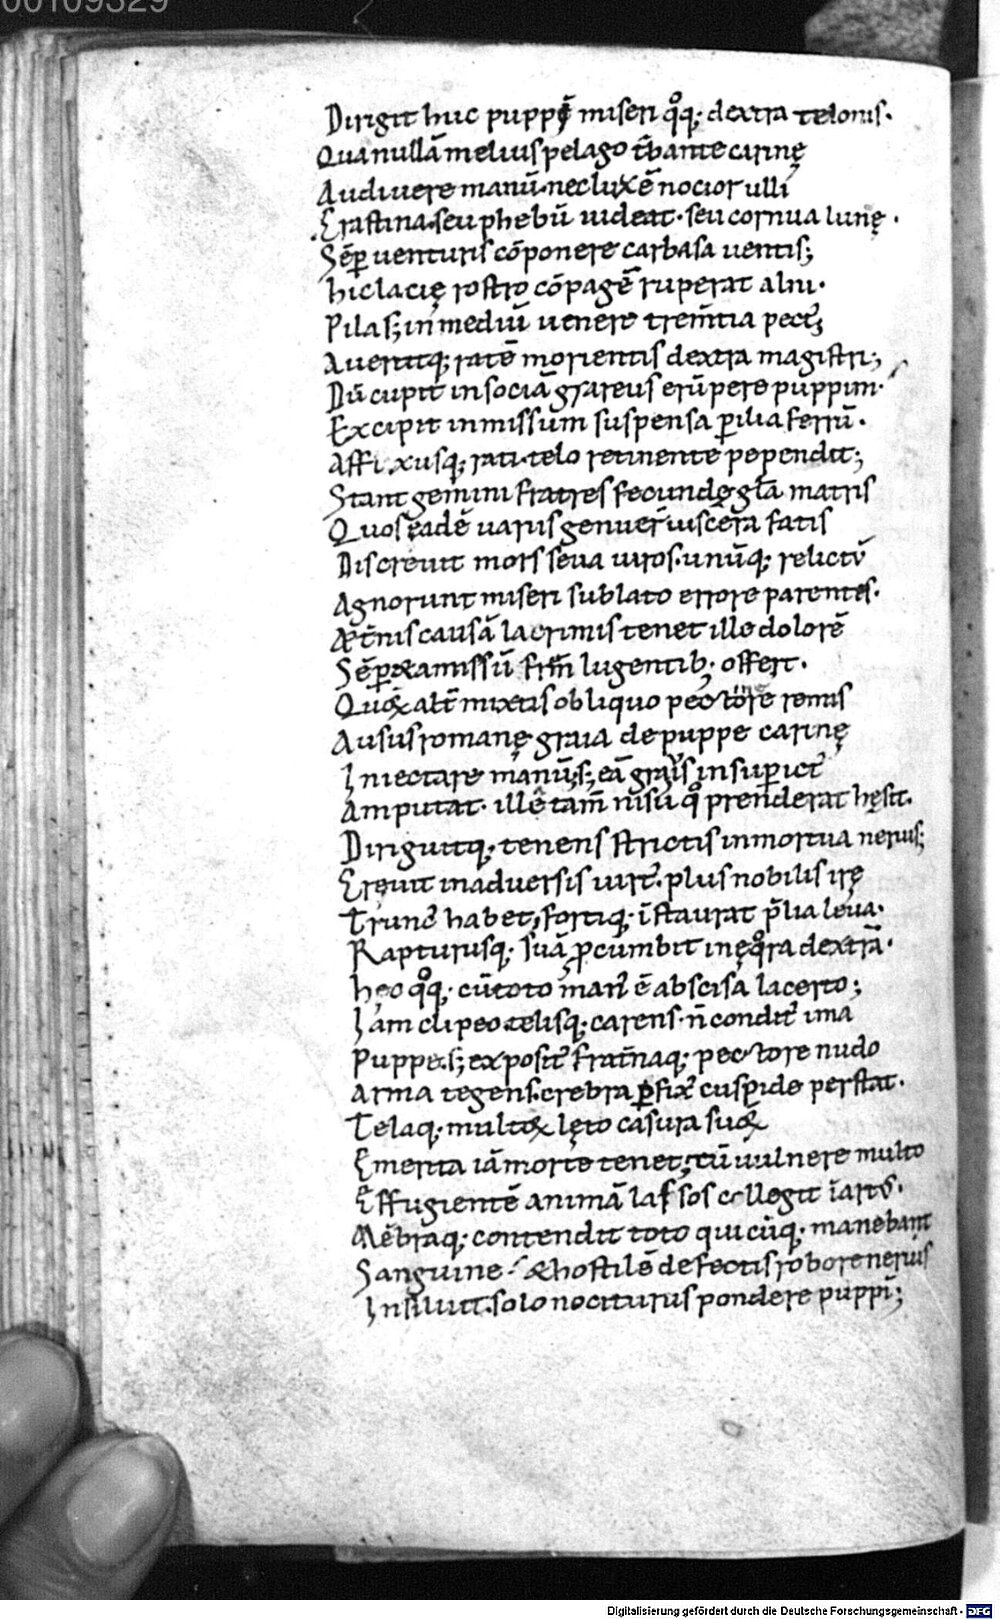 00109329
Dirigit huc puppē miseri q̊q; dextra telonis.
Qua nullā melius pelago t̄bante carinę
Audiuere manū. nec lux ē nocior ulli
Crastina. seu phebū uideat. seu cornua lunę.
Sēp uenturis cōponere carbasa uentis;
hic lacię rostro cōpagē ruperat alni.
Pila s; in mediū uenere trem̄tia pect᷒;
Auertitq; ratē morientis dextra magistri;
Dū cupit in sociā grareus erūpere puppim.
Excipit inmissum suspensa ꝑ ilia ferrū.
Affixusq; rati. telo retinente pependit;
Stant gemini fratres fecundę gl̄a matris
Quos eadē uariis genuer̄ uiscera fatis
Discreuit mors seua uiros. unūq; relictū
Agnorunt miseri sublato errore parentes.
Æt̄nis causā lacrimis tenet ille dolorē
Sēꝑ & amissū fr̄m lugentib; offert.
Quoꝝ alt̄ mixtis obliquo pectore remis
Ausus romanę graia de puppe carinę
Iniectare manū; s; eā grauis insuꝑ ict᷒
Amputat. illē tam̄ nisu q̊ prenderat hęsit.
Diriguitq; tenens strictis inmortua neruis;
Creuit in aduersis uirt᷒. plus nobilis irę
Trunc᷒ habet, fortiq; īstaurat p̄lia leua.
Rapturusq; suā ꝓcumbit in ęq̊ra dextrā.
hęc q̊q; cū toto man᷒ ē abscisa lacerto;
Iam clipeo telisq; carens. n̄ condit᷒ ima
Puppe. s; exposit᷒ frat̄naq; pectore nudo
Arma tegens. crebra ꝑfix᷒ cuspide perstat.
Telaq; multoꝝ lęto casura suoꝝ
Emerita iā morte tenet; tū uulnere multo
Effugientē animā lassos collegit ī art᷒.
Mēbraq; contendit toto quicūq; manebant
Sanguine. & hostilē defectis robore neruis
Insiluit. solo nociturus pondere puppī;
Digitalisierung gefördert durch die Deutsche Forschungsgemeinschaft - DFG